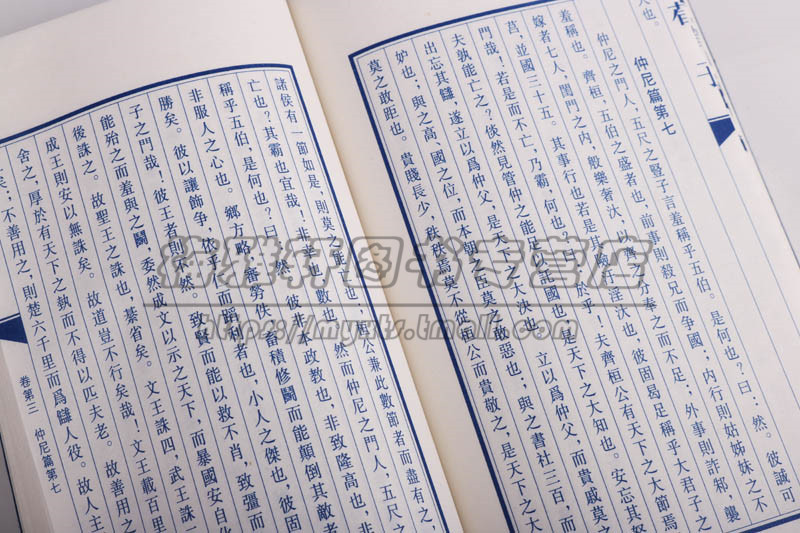 人也。
仲尼篇第七
仲尼之門人，五尺之豎子言羞稱乎五伯。是何也？曰：然。彼誠可
羞稱也。齊桓，五伯之盛者也，前事則殺兄而爭國；內行則姑姊妹之不
嫁者七人，閨門之內，般樂奢汏，以齊之分奉之而不足；外事則詐邾，襲
莒，並國三十五。其事行也若是其險汙淫汏也，彼固曷足稱乎大君子之
門哉！若是而不亡，乃霸，何也？曰：於乎！夫齊桓公有天下之大節焉
夫孰能亡之？倓然見管仲之能足以託國也，是天下之大知也。安忘其怒
出忘其讎，遂立以爲仲父，是天下之大決也。立以爲仲父，而貴戚莫之
妒也；與之高、國之位，而本朝之臣莫之敢惡也；與之書社三百，而
莫之敢距也。貴賤長少，秩秩焉莫不從桓公而貴敬之，是天下之大
諸侯有一節如是，則莫之能亡也；桓公兼此數節者而盡有之，
亡也？其霸也宜哉！非幸也，數也。然而仲尼之門人，五尺之
稱乎五伯，是何也？曰：然。彼非本政教也，非致隆高也，非
非服人之心也。鄉方略，審勞佚，畜積修鬭而能顛倒其敵者
勝矣。彼以讓飾爭，依乎仁而蹈利者也，小人之傑也，彼固
子之門哉！彼王者則不然。致賢而能以救不肖，致彊而
能殆之而羞與之鬭，委然成文以示之天下，而暴國安自化
後誅之。故聖王之誅也，綦省矣。文王誅四，武王誅二
成王則安以無誅矣。故道豈不行矣哉！文王載百里
舍之，厚於有天下之埶而不得以匹夫老。故善用之
矣；不善用之，則楚六千里而爲讎人役。故人主
卷第三　仲尼篇第七